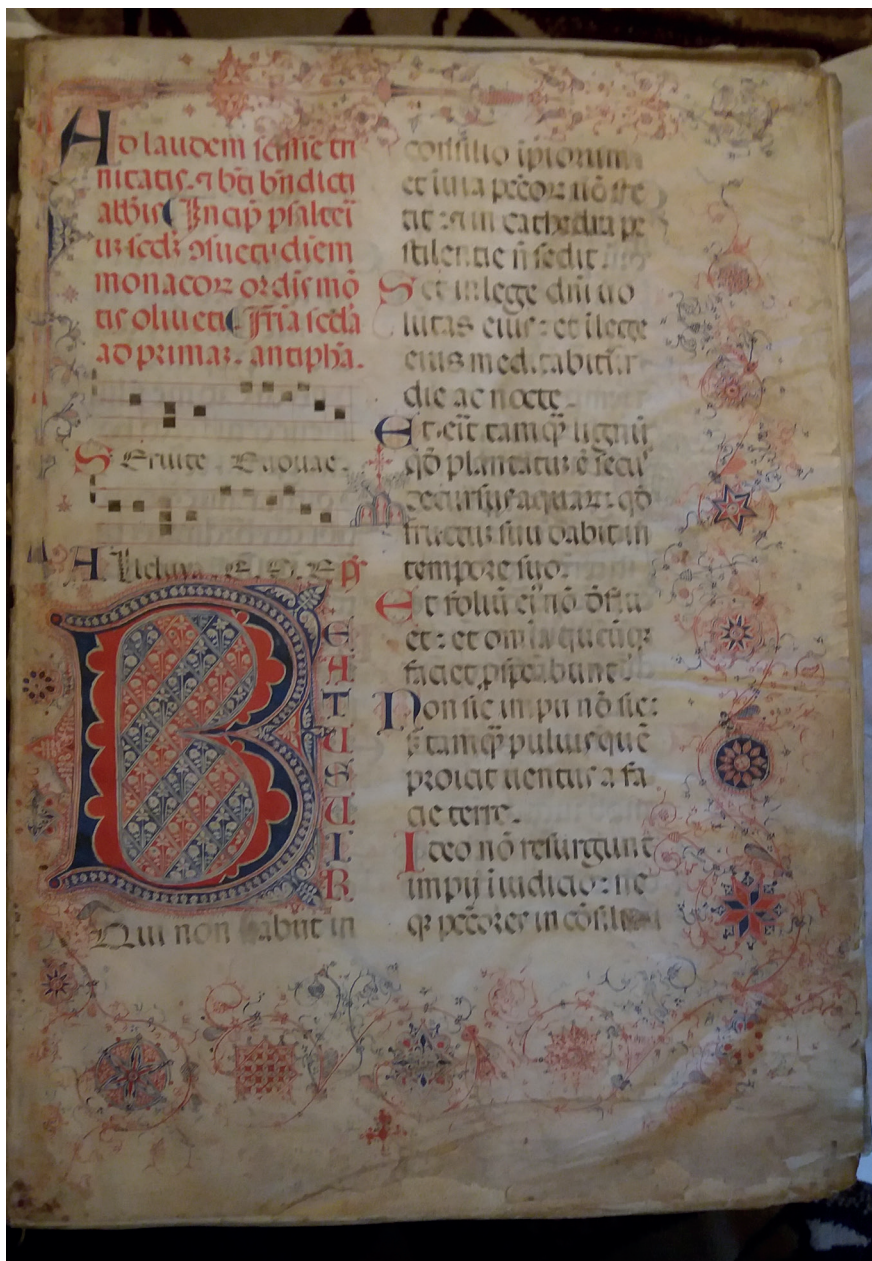 Ad laudem scissīe tri
nitatis. ⁊ bti bn̄dicti
abbis Incip̄ psalteri
uz secdȝ ↄsuetudiem
monacoꝝ ordīs mō
tis oliueti Fr̄ia secda
ad primaz. antipha.
Seruite. Euouae.
Alleluya. E. V. E. ps̄
BEATUS UIR
Qui non habiit in
consilio īpiorum
et in uia pcc̄oꝝ nō ste
tit: ⁊ in cathedra pe
stilentie n̄ sedit.
Set in lege dn̄i uo
luntas eius: et ī lege
eius meditabitur
die ac nocte.
Et erit tamqȝ lignū
qd̄ plantatuz ē secus
decursus aquaꝝ: qd̄
fructuz suū dabit in
tempore suo.
Et foliū eī nō deflu
et: et omīa quecūqȝ
faciet psꝑabuntur
Non sic impii nō sic:
s̄ tamqȝ puluis quē
proicit uentus a fa
cie terre.
Ideo nō resurgunt
impij ī iudicio: ne
qȝ pcc̄ores in cōsilio